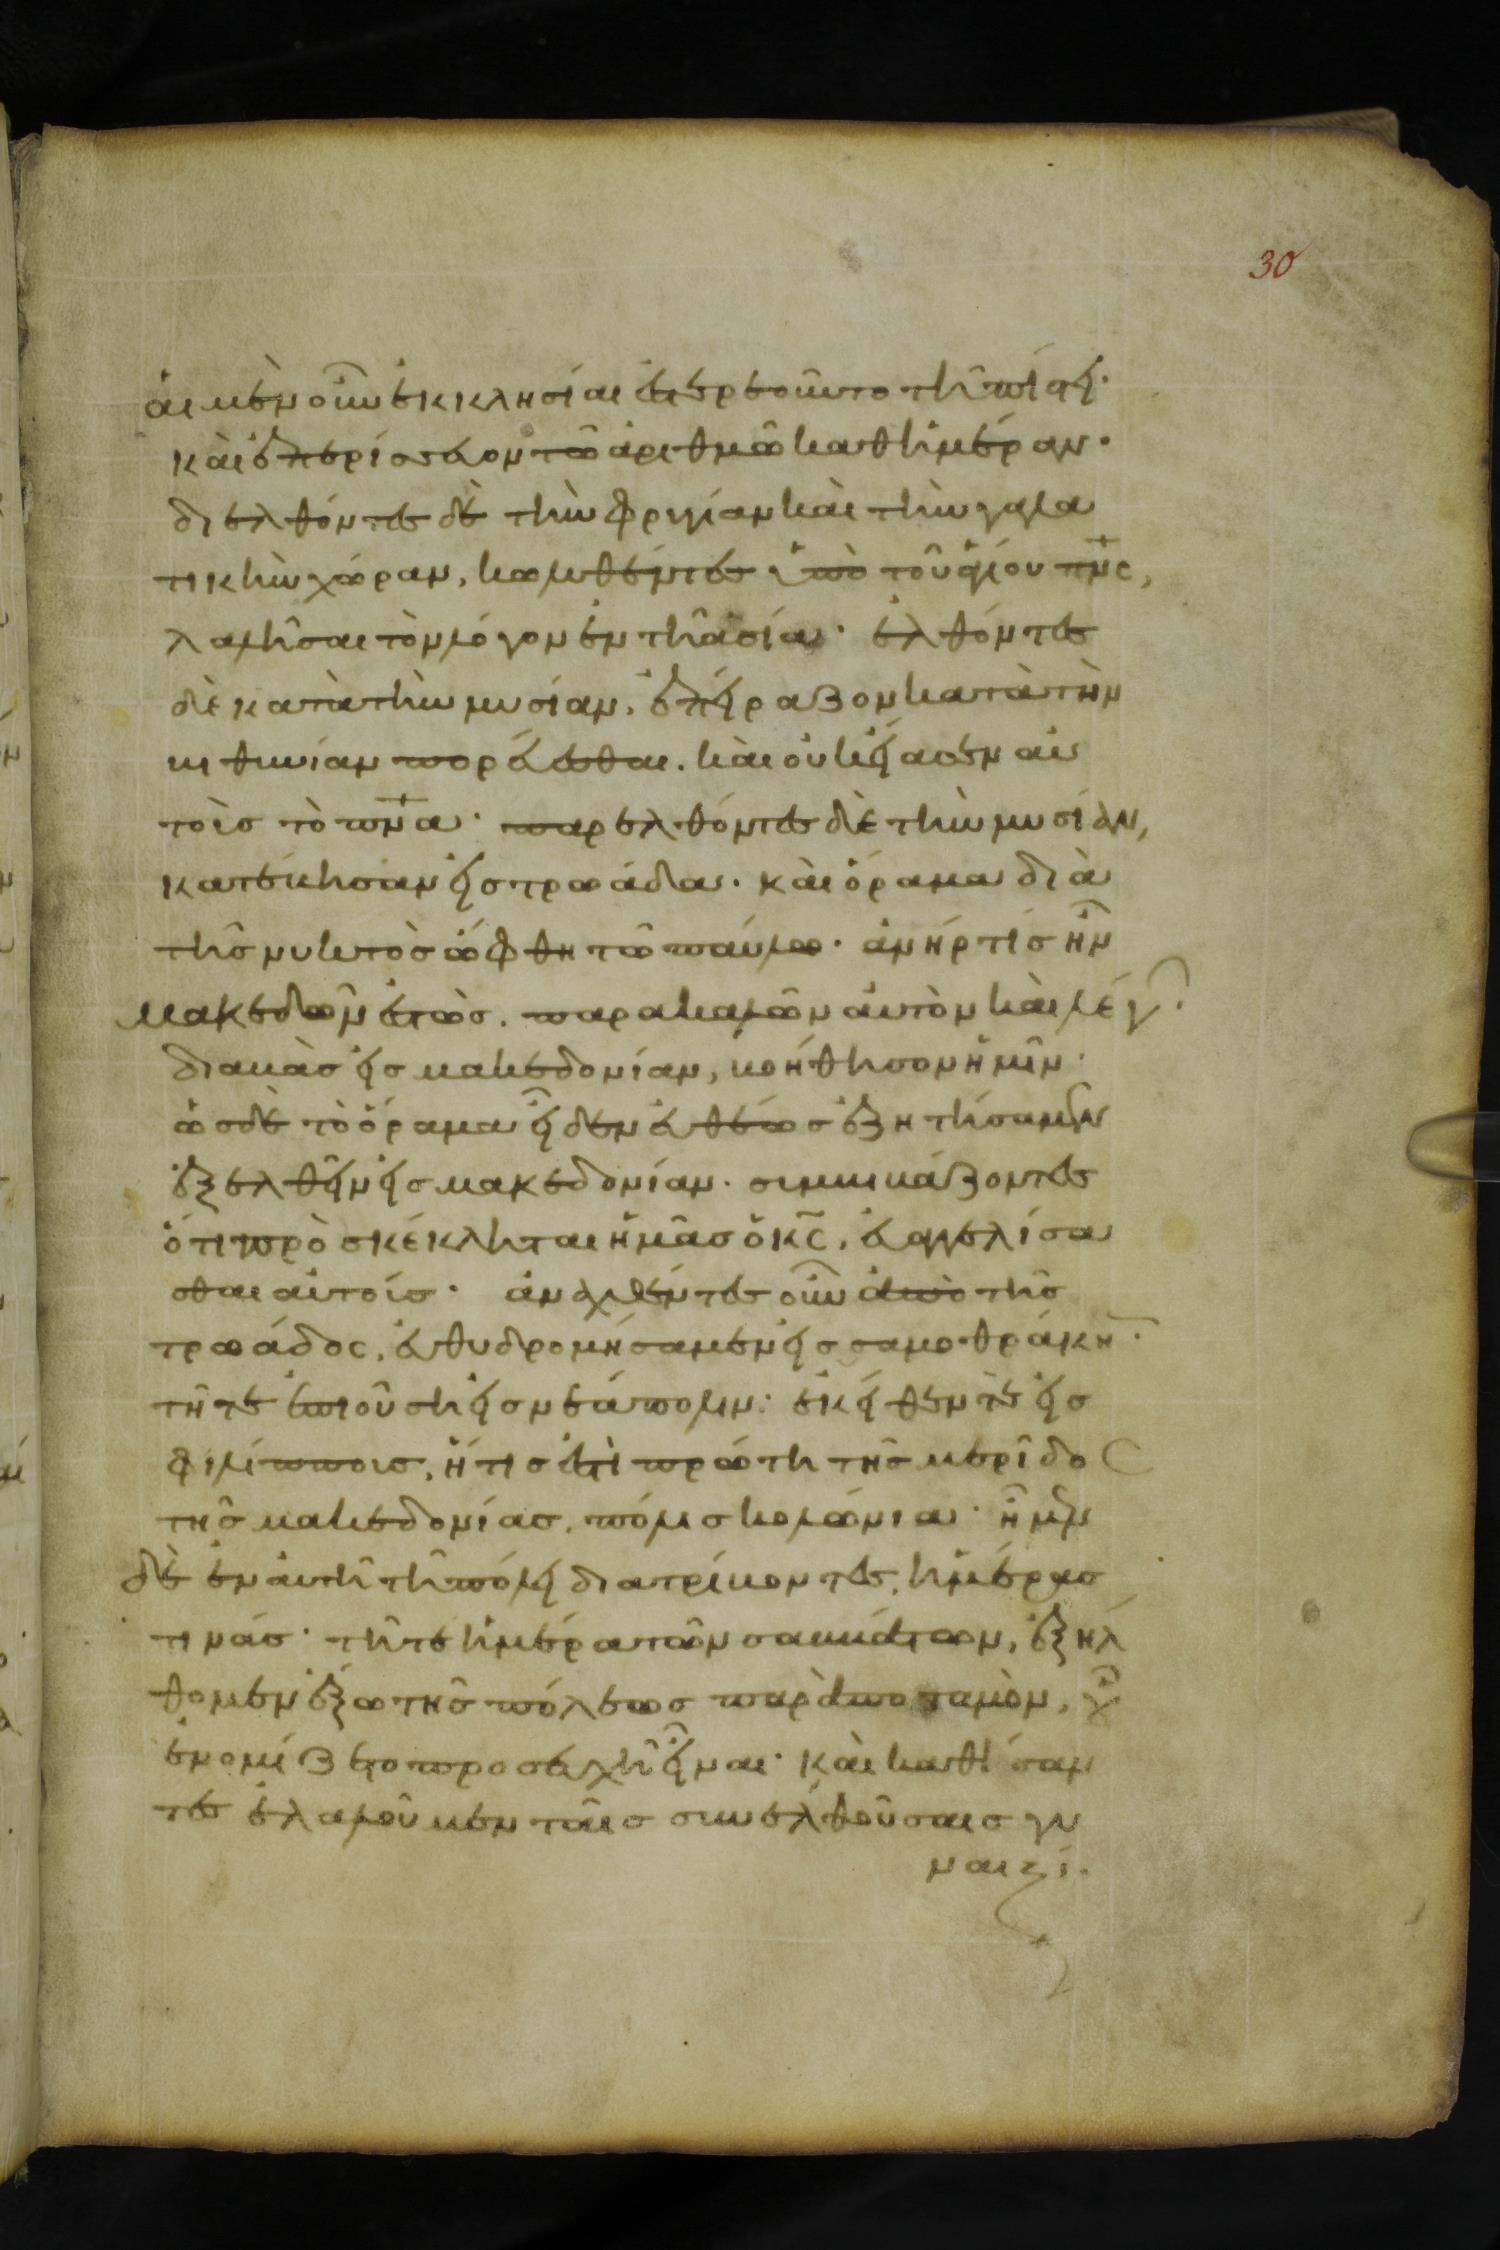 30
ἁι μὲν οὖν ἐκκλησίαι ἐστερεοῦντο τῆ πίστει·
καὶ ἐπερίσσευον τῶ ἀριθμῶ καθ ἡμέραν·
διελθόντες δὲ τὴν φρυγίαν καὶ τὴν γαλα
τικὴν χώραν, κωλυθέντες ὑπὸ τοῦ ἁγίου πνς,
λαλῆσαι τὸν λόγον ἐν τῆ ἀσία· ἐλθόντες
δὲ κατὰ τὴν μυσίαν, ἐπείραζον κατὰ τὴν
βιθυνίαν πορεύεσθαι. καὶ οὐκ εἴασεν αὐ
τοὶς τὸ πνα· παρελθόντες δὲ τὴν μυσίαν,
κατέβησαν εἰς τρωάδα. καὶ ὅραμα διὰ
τῆς νυκτὸς ὤφθη τῶ παύλω· ἀνήρ τίς ἦν
μακεδὼν ἑστὼς. παρακαλῶν αὐτὸν καὶ λέγων·
διαβὰς εἰς μακεδονίαν, βοήθησον ἡμῖν·
ὡς δὲ τὸ ὅραμα εἶδεν εὐθέως ἐζητήσαμεν
ἐξελθεῖν εἰς μακεδονίαν. συμβιβάζοντες
ὅτι προσκέκληται ἡμᾶς ὁ κς, εὐαγγελίσα
σθαι αὐτοίς· ἀναχθέντες οὖν ἀπὸ τῆς
τρωάδος, εὐθυδρομήσαμεν εἰς σαμοθράκην·
τῆ τε ἐπιοῦση εἰς νεάπολιν· ἐκεῖθέν τε εἰς
φιλίπποις, ἥτις ἐστὶ πρώτη τῆς μερίδος
τῆς μακεδονίας, πόλις κολώνια· ἦμεν
δὲ ἐν αὐτῆ τῆ πόλει διατρίβοντες, ἡμέρας
τινάς· τῆ τε ἡμέρα τῶν σαββάτων, ἐξήλ
θομεν ἔξω τῆς πόλεως παρὰ ποταμὸν, οὗ
ἐνομίζετο προσευχὴ εἶναι· καὶ καθίσαν
τες ἐλαλοῦμεν ταῖς συνελθοῦσαις γυ
ναιξί.